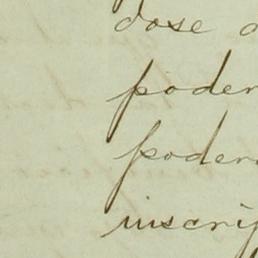 dose
poder
poder
inscrip